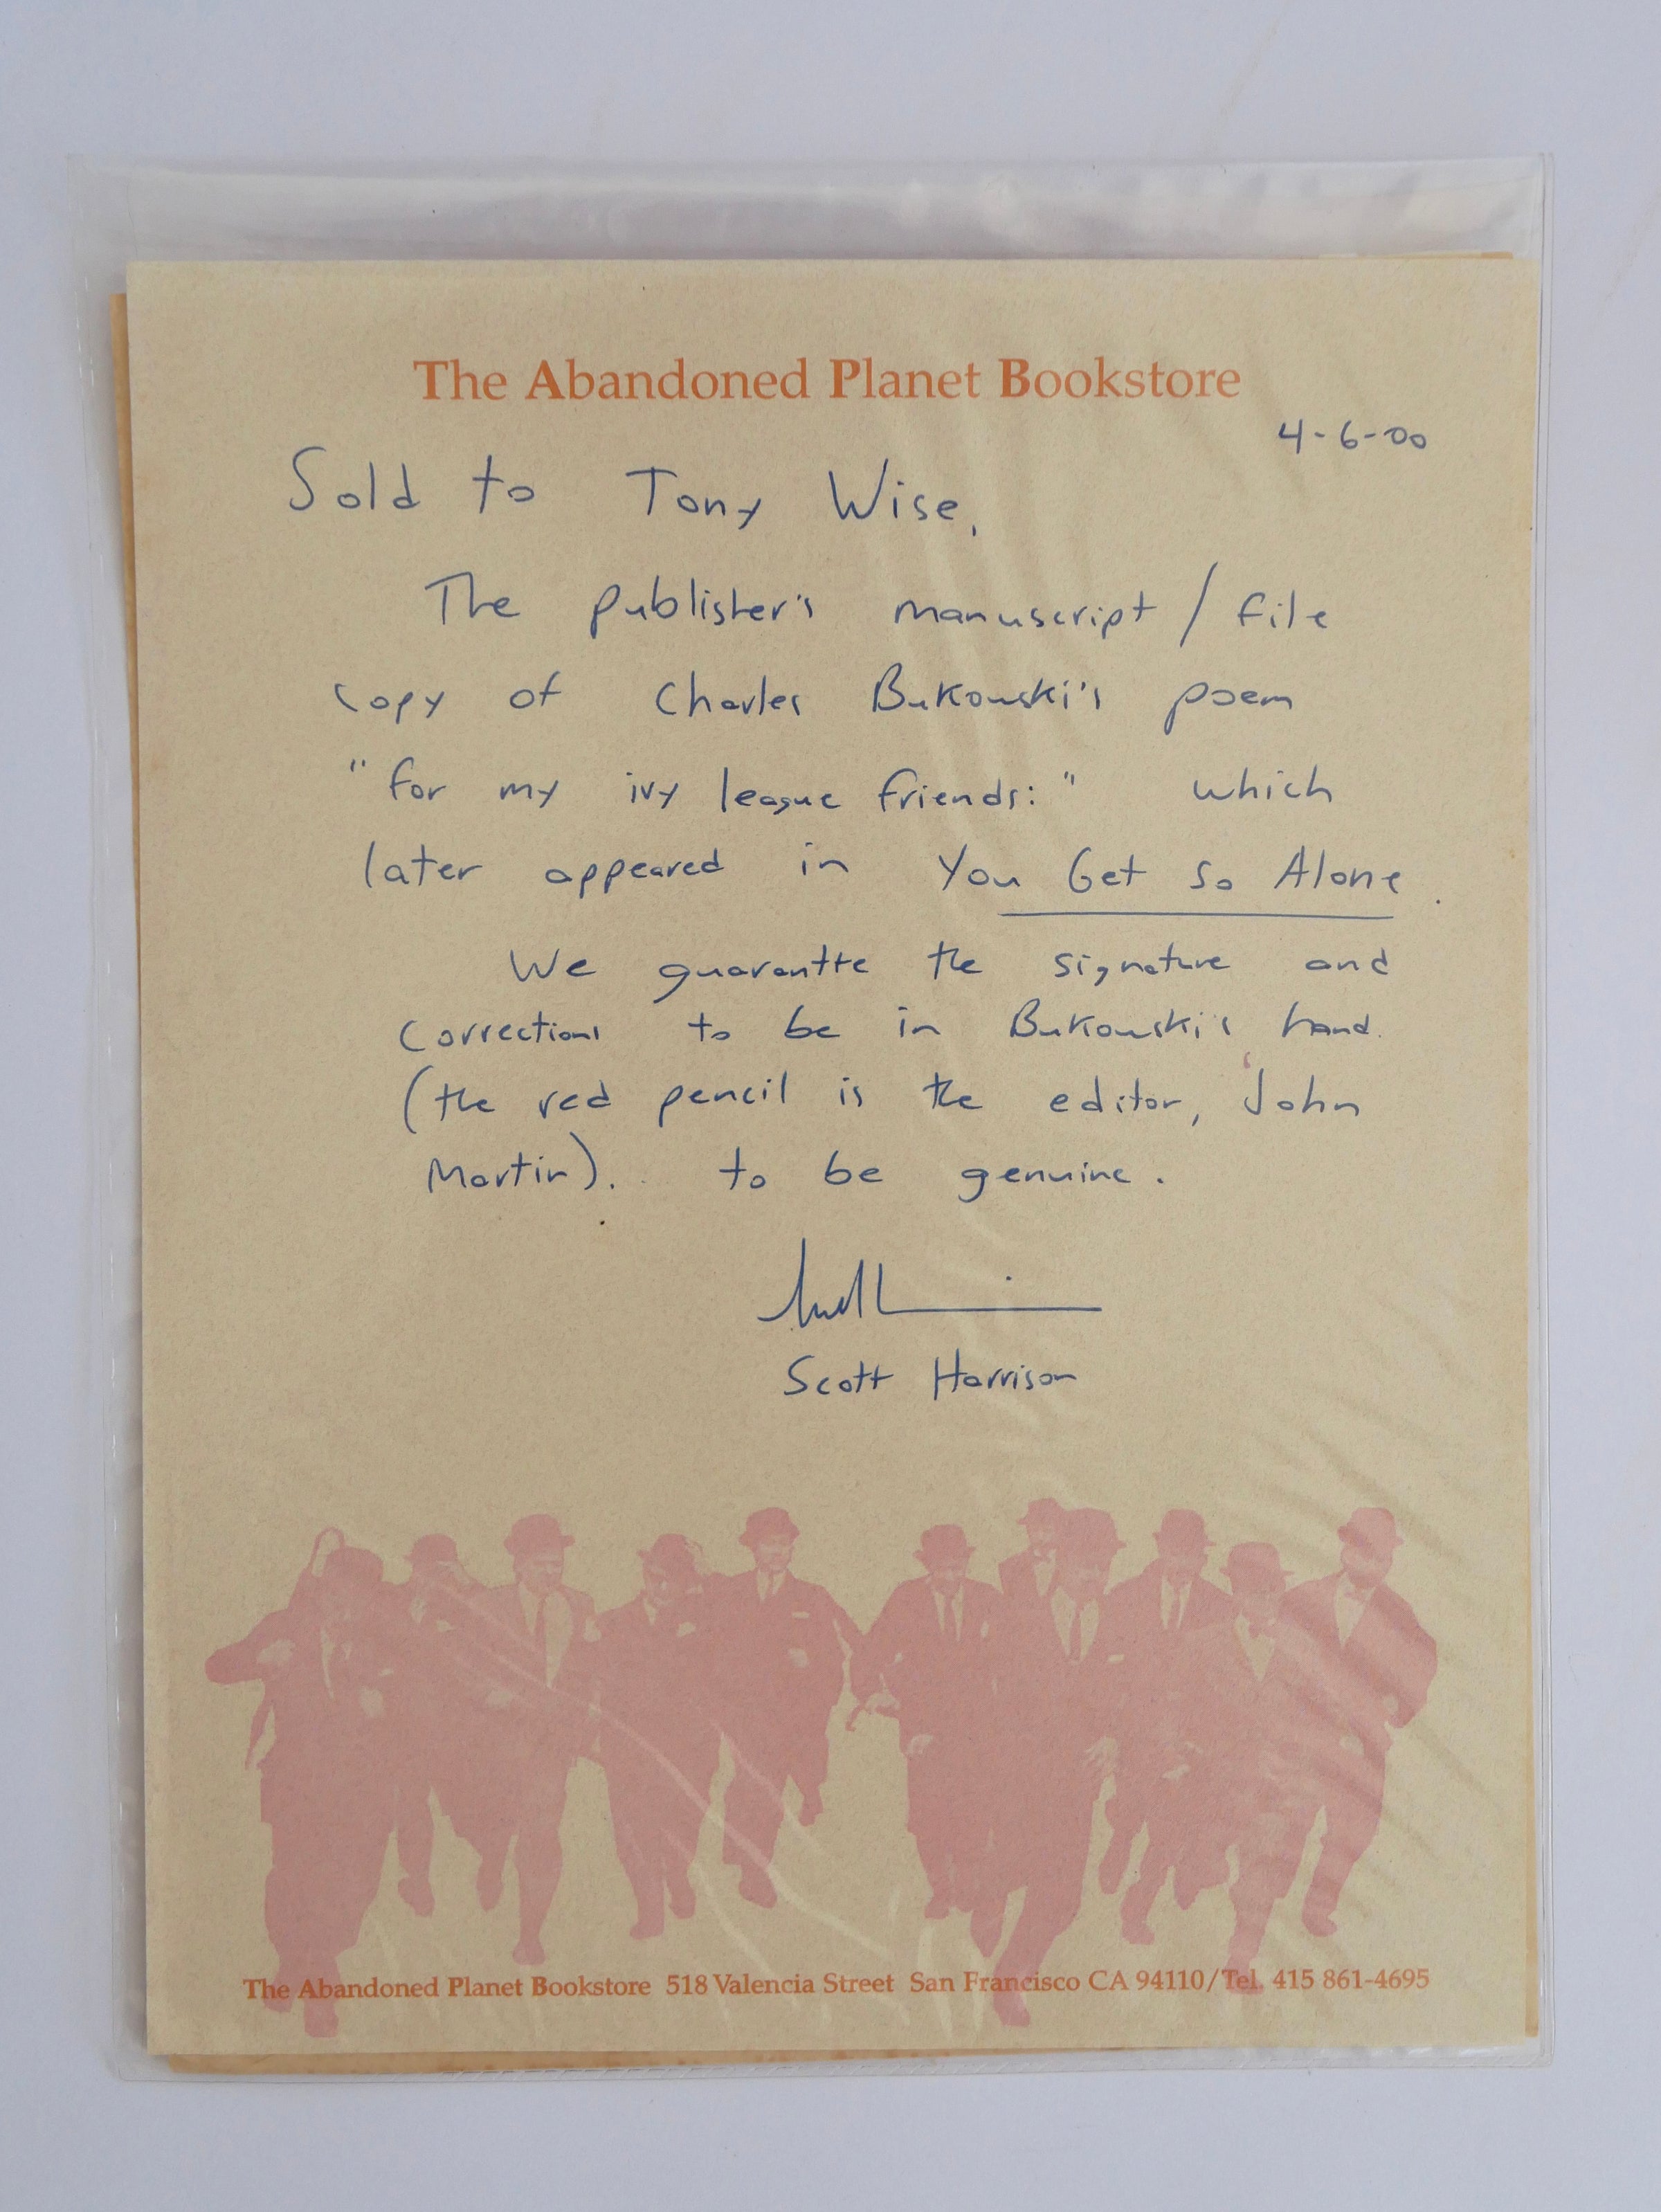 The Abandoned Planet Bookstore
4-6-00
Sold to Tony Wise,
The publisher's manuscript / file
copy of Charles Bukowski's poem
"for my ivy league friends:" which
later appeared in You Get So Alone.
We guarantte the signature and
corrections to be in Bukowski's hand.
(the red pencil is the editor, John
Martin). to be genuine.
Scott Harrison
The Abandoned Planet Bookstore 518 Valencia Street San Francisco CA 94110/Tel. 415 861-4695